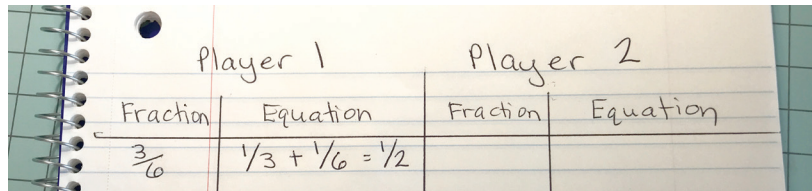 Player 1 Player 2
Fraction Equation Fraction Equation
3/6 1/3 + 1/6 = 1/2